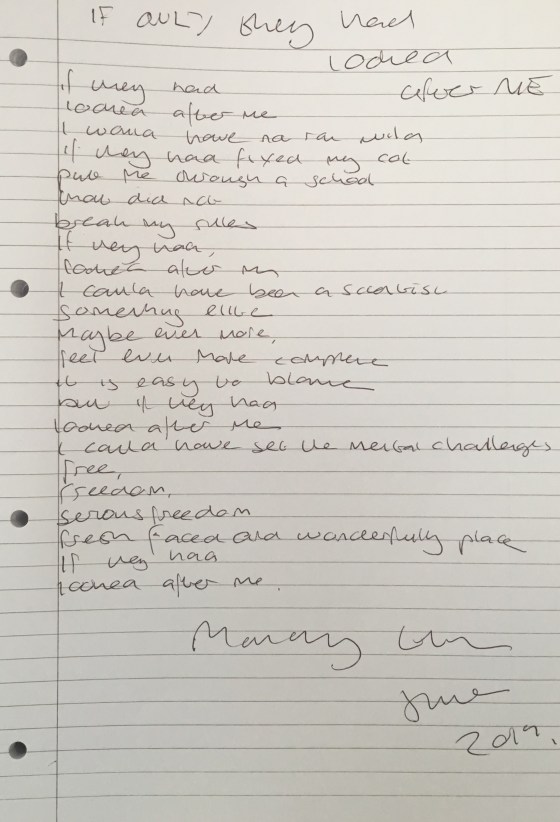 IF ONLY they had
looked
after ME
if they had
looked after me
I would have not ran wild
if they had fixed my cot
put me through a school
that did not
break my rules
If they had,
looked after me
I could have been a scientist
something else
Maybe even more,
feel even more complete
it is easy to blame
but if they had
looked after me
I could have set the mental challenges
free,
freedom,
serous freedom
fresh faced and wonderfully place
If they had
looked after me.
June
2019.